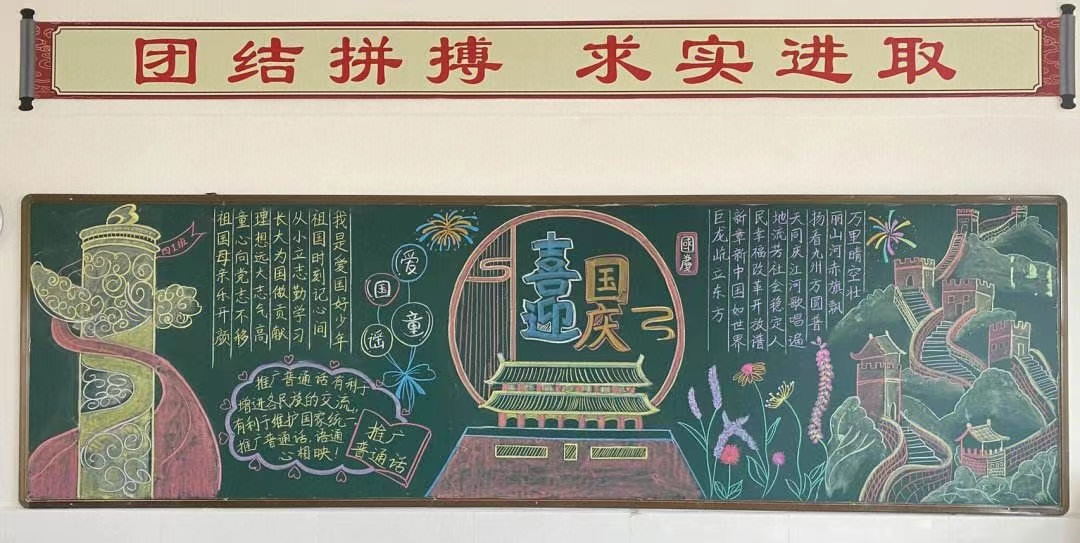 团结拼搏 求实进取
四1班
我是爱国好少年
祖国时刻记心间
从小立志勤学习
长大为国做贡献
理想远大志气高
童心向党志不移
祖国母亲乐开颜
爱
国
童
谣
推广普通话有利于
增进各民族的交流,
有利于维护国家统一
推广普通话,语通
心相映!
推广
普通话
喜迎
国庆
國慶
万里晴空壮
丽山河赤旗飘
扬看九州方圆普
天同庆江河歌唱遍
地流芳社会稳定人
民幸福改革开放谱
新章新中国如世界
巨龙屹立东方